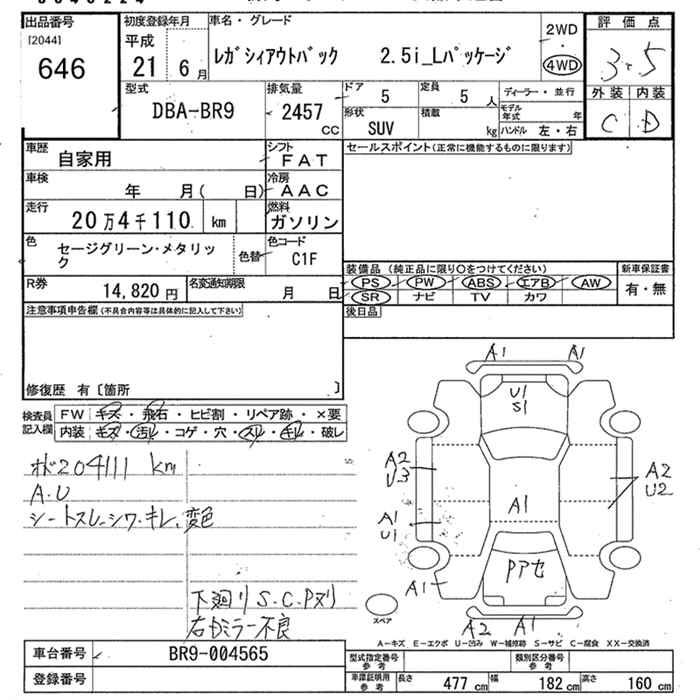 出品番号
[2044]
646
初度登録年月
平成
21 6月
車名・グレード
レガシィアウトバック 2.5i_Lパッケージ
2WD
・
4WD
評価点
3.5
外装 内装
C D
型式
DBA-BR9
排気量
2457
CC
ドア
5
定員
5 人
形状
SUV
積載
kg
ディーラー・並行
モデル年式 年
ハンドル 左・右
車歴
自家用
シフト
FAT
車検
年 月( 日)
冷房
AAC
走行
20万4千110 km
燃料
ガソリン
色
セージグリーン・メタリック
色替
色コード
C1F
R券
14,820円
名変通知期限
月 日
セールスポイント(正常に機能するものに限ります)
装備品 (純正品に限り〇をつけてください)
PS PW ABS エアB AW
SR ナビ TV カワ
新車保証書
有・無
後日品
注意事項申告欄(不具合内容等は具体的に記入して下さい)
修復歴 有〔箇所 〕
検査員記入欄
FW キズ・飛石・ヒビ割・リペア跡・×要
内装 キズ・汚れ・コゲ・穴・スレ・キレ・破レ
メ204111 km
A.U
シートスレ.シワ.キレ、変色
下廻りS.C.Pヌリ
右ドミラー不良
A1 A1
U1
S1
A2
U3
A2
U2
A1
A1
U1
Pアセ
A1
A2 A1
スペア
A-キズ E-エクボ U-凹み W-補修跡 S-サビ C-腐食 XX-交換済
車台番号
BR9-004565
登録番号
型式指定番号
参考
類別区分番号
参考
車庫証明用
参考
長さ 477cm 幅 182cm 高さ 160cm